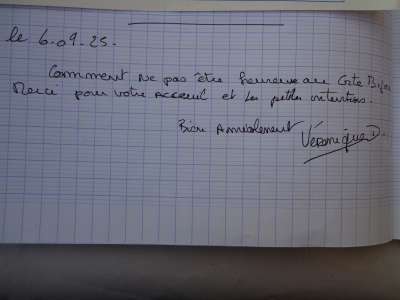 le 6.09.25.
Comment ne pas être heureuse au Gite Bijou
Merci pour votre Accueil et les petites intentions.
Bien Amicalement
Véronique D.